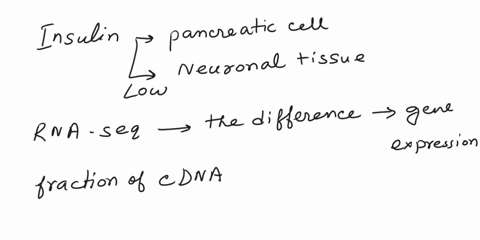 Insulin → pancreatic cell
↳ Neuronal tissue
Low
RNA-seq → the difference → gene
expression
fraction of cDNA